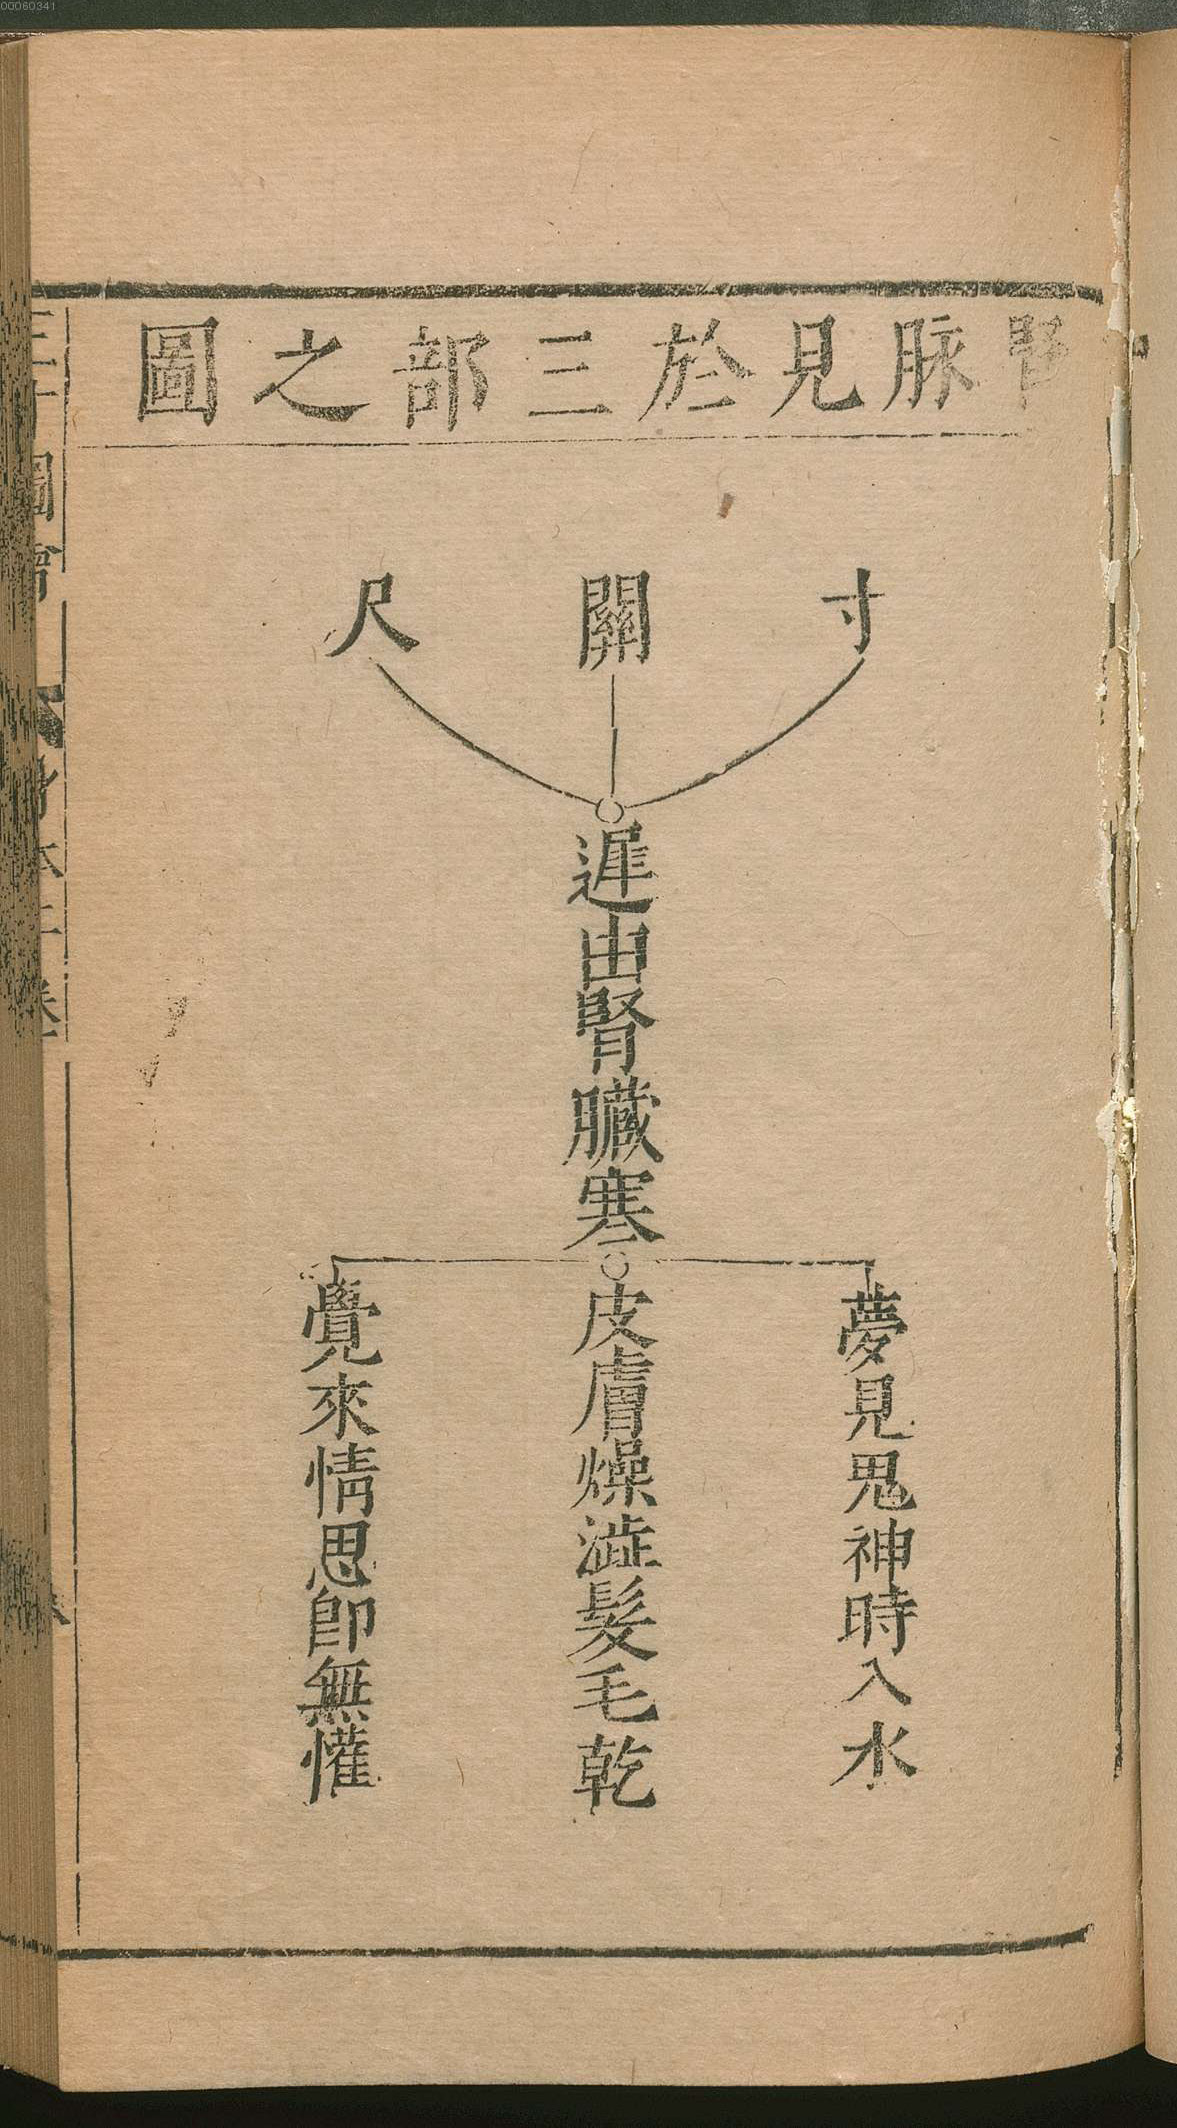 00060341
腎脉見於三部之圖
寸
關
尺
遲由腎臟寒
夢見鬼神時入水
皮膚燥澁髮毛乾
覺來情思卽無懽
三才圖會
身體 卷